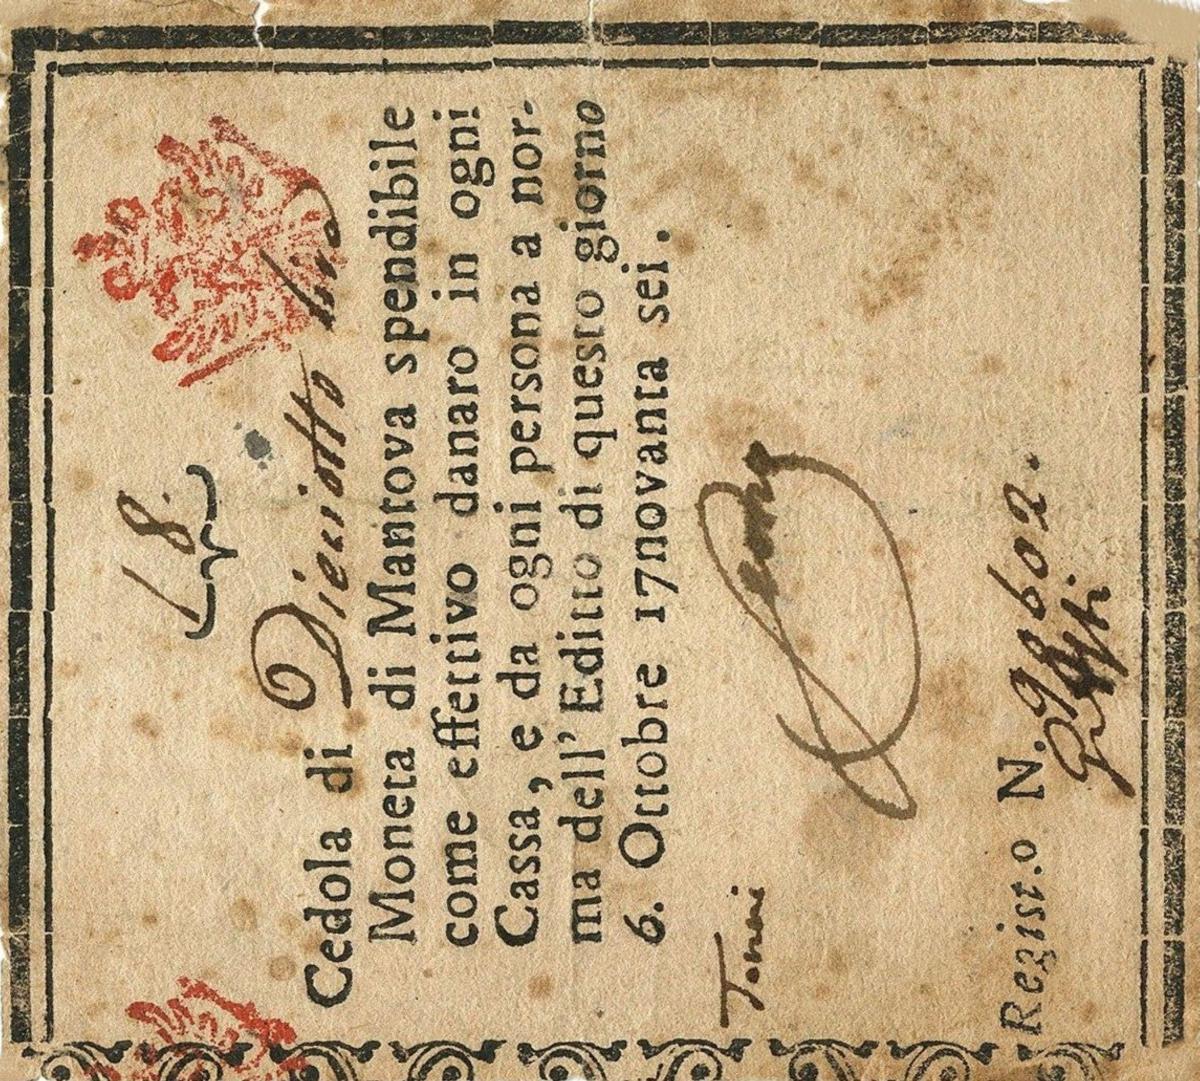 18.
Cedola di Dieciotto lire
Moneta di Mantova spendibile
come effettivo danaro in ogni
Cassa, e da ogni persona a nor-
ma dell' Editto di questo giorno
6. Ottobre 17novanta sei.
Regist.o N. 98602.